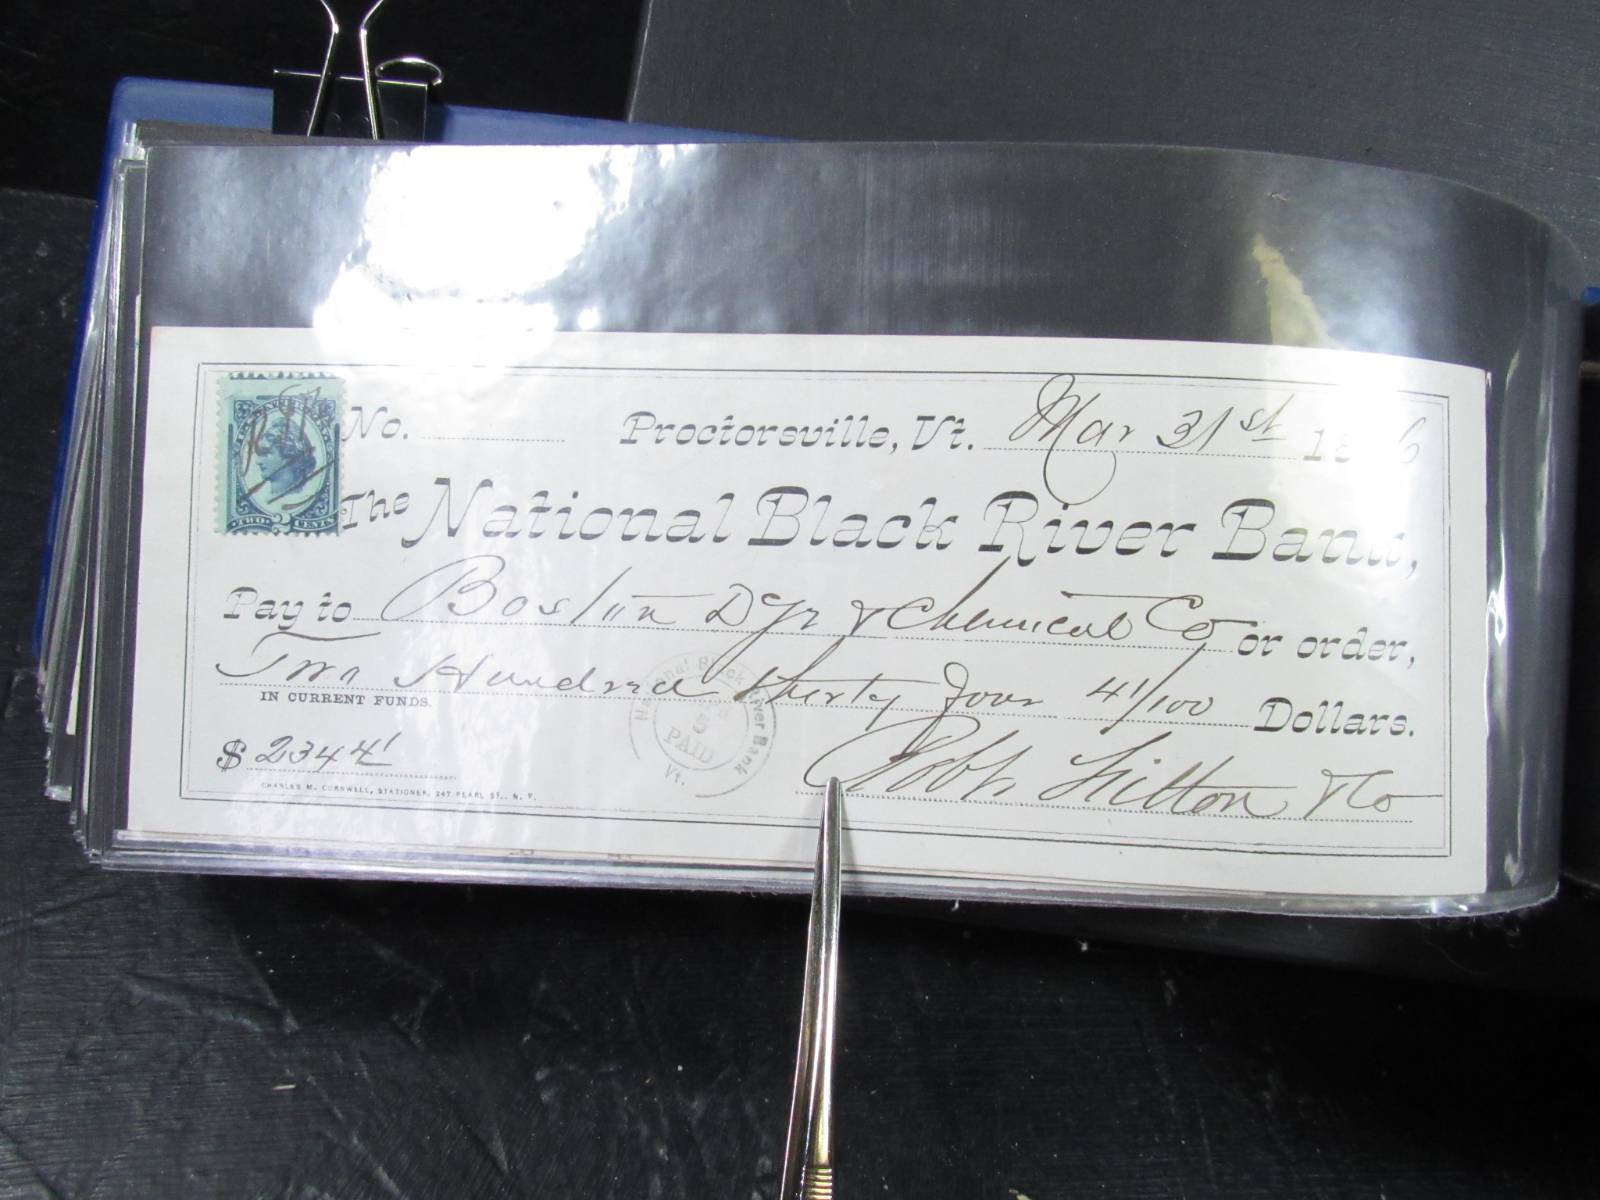 No. Proctorsville, Vt. Mar 31st 18 6
The National Black River Bank,
Pay to Boston Dye & Chemical Co or order,
Two Hundred thirty four 41/100 Dollars.
IN CURRENT FUNDS.
$ 234 41
National Black River Bank
PAID
Vt.
Hilton & Co
CHARLES M. CORNWELL, STATIONER, 247 PEARL ST., N. Y.
TWO 2 CENTS